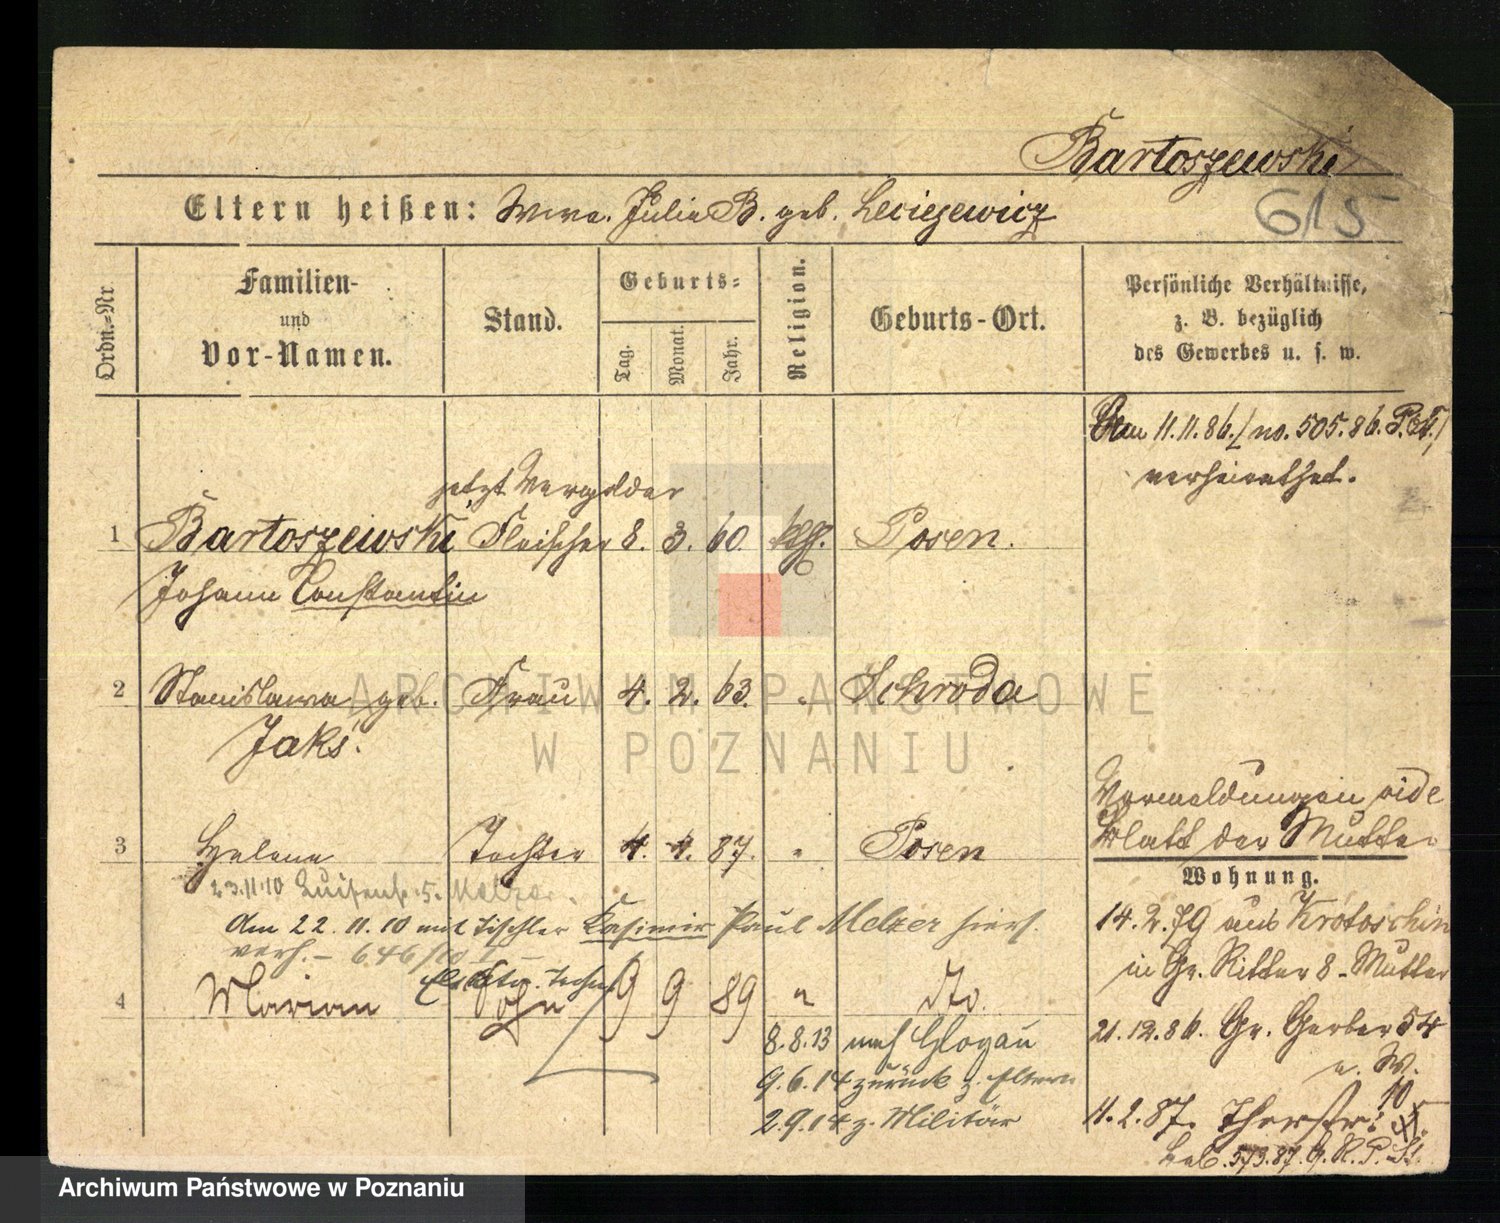 Bartoszewski
Eltern heißen: Wwe. Julie B. geb. Leciejewicz
615
Ordn.-Nr.
Familien-
und
Vor-Namen.
Stand.
Geburts-
Tag.
Monat.
Jahr.
Religion.
Geburts-Ort.
Persönliche Verhältnisse,
z. B. bezüglich
des Gewerbes u. s. w.
11.11.86. / no. 505.86. P. /
verheirathet.
jetzt Vergolder
1 Bartoszewski Fleischer 8. 3. 60. kth. Posen.
Johann Constantin
2 Stanislawa geb. Frau 4. 2. 63. " Schroda
Jaks.
Vermeldungen vide
Blatt der Mutter
3 Helene Tochter 4. 4. 87. " Posen
Wohnung.
23.11.10 Luisenstr. 5. Melzer.
14.2.79 aus Krotoschin
den 22.11.10 mit Tischler Kasimir Paul Melzer hiers.
verh. – 646/10 I –
in Gr. Ritter 8 - Mutter
4 Marian Sohn 9 9 89 " dto.
21.12.86. Gr. Gerber 54
8.8.13 nach Glogau
u. W.
9.6.14 zurück z. Eltern
2.9.14 z. Militär
11.2.87. Thorstr. 10
573.87. P. St.
ARCHIWUM PAŃSTWOWE
W POZNANIU
Archiwum Państwowe w Poznaniu